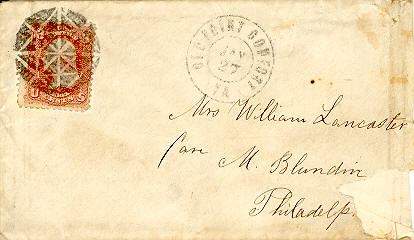 OLD POINT COMFORT
JAN
27
VA
Mrs William Lancaster
Care M. Blundin
Philadelp